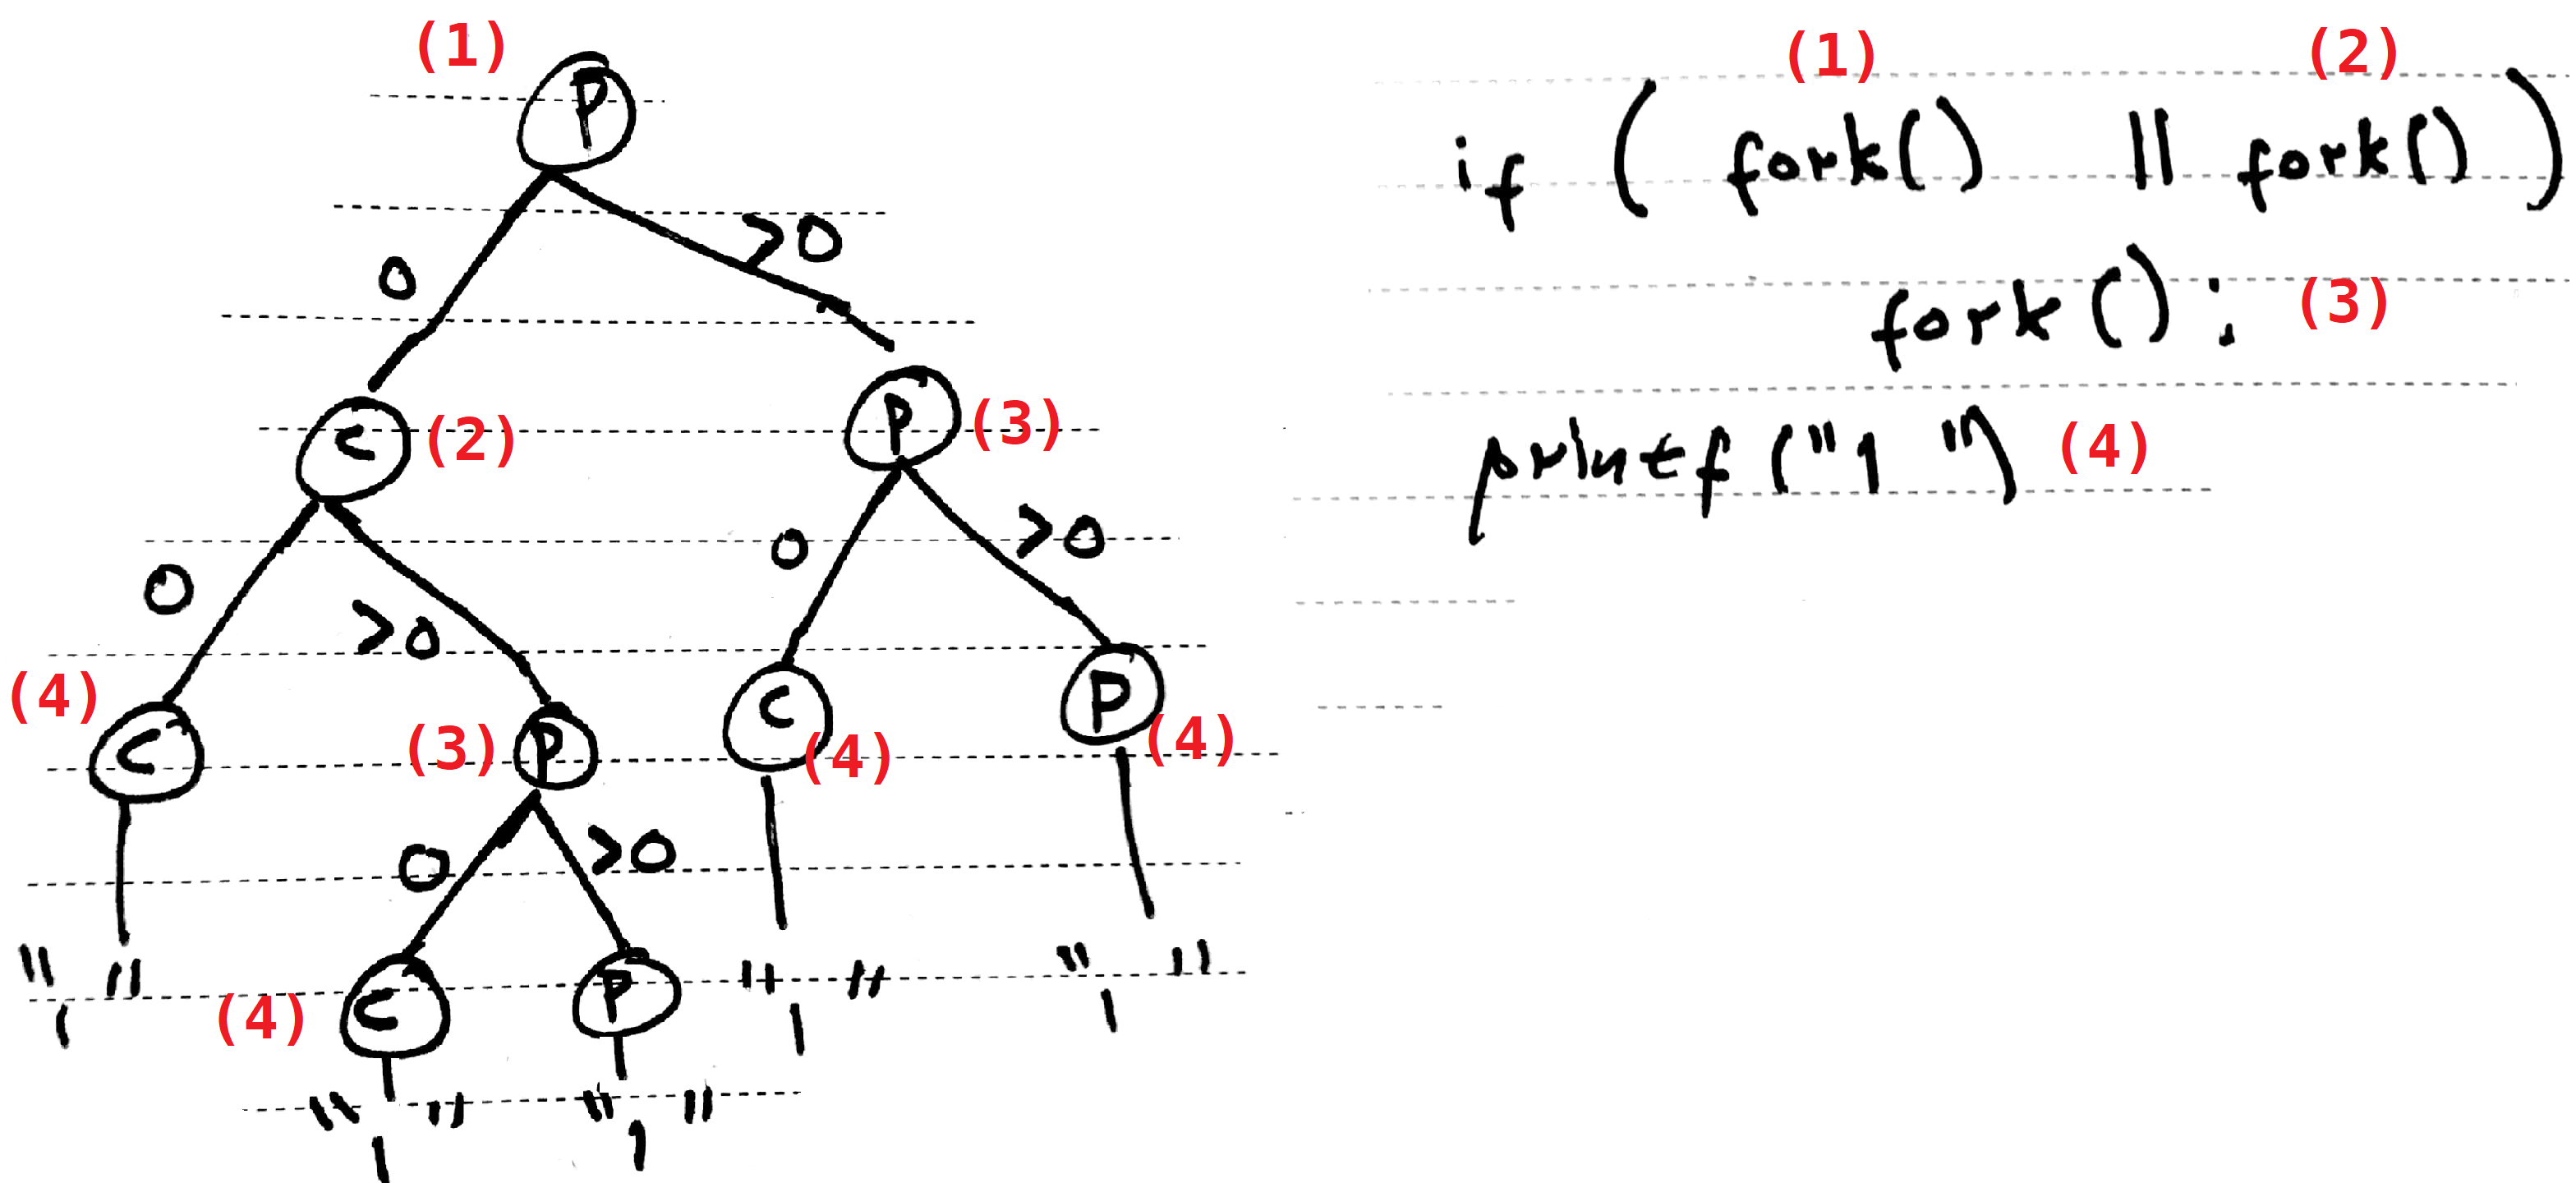 (1)
P
0 >0
C (2) P (3)
0 >0 0 >0
(4) C (3) P C (4) P (4)
0 >0
"1" (4) C P "1" "1"
"1" "1"
(1) (2)
if ( fork() || fork() )
fork(); (3)
printf("1 ") (4)